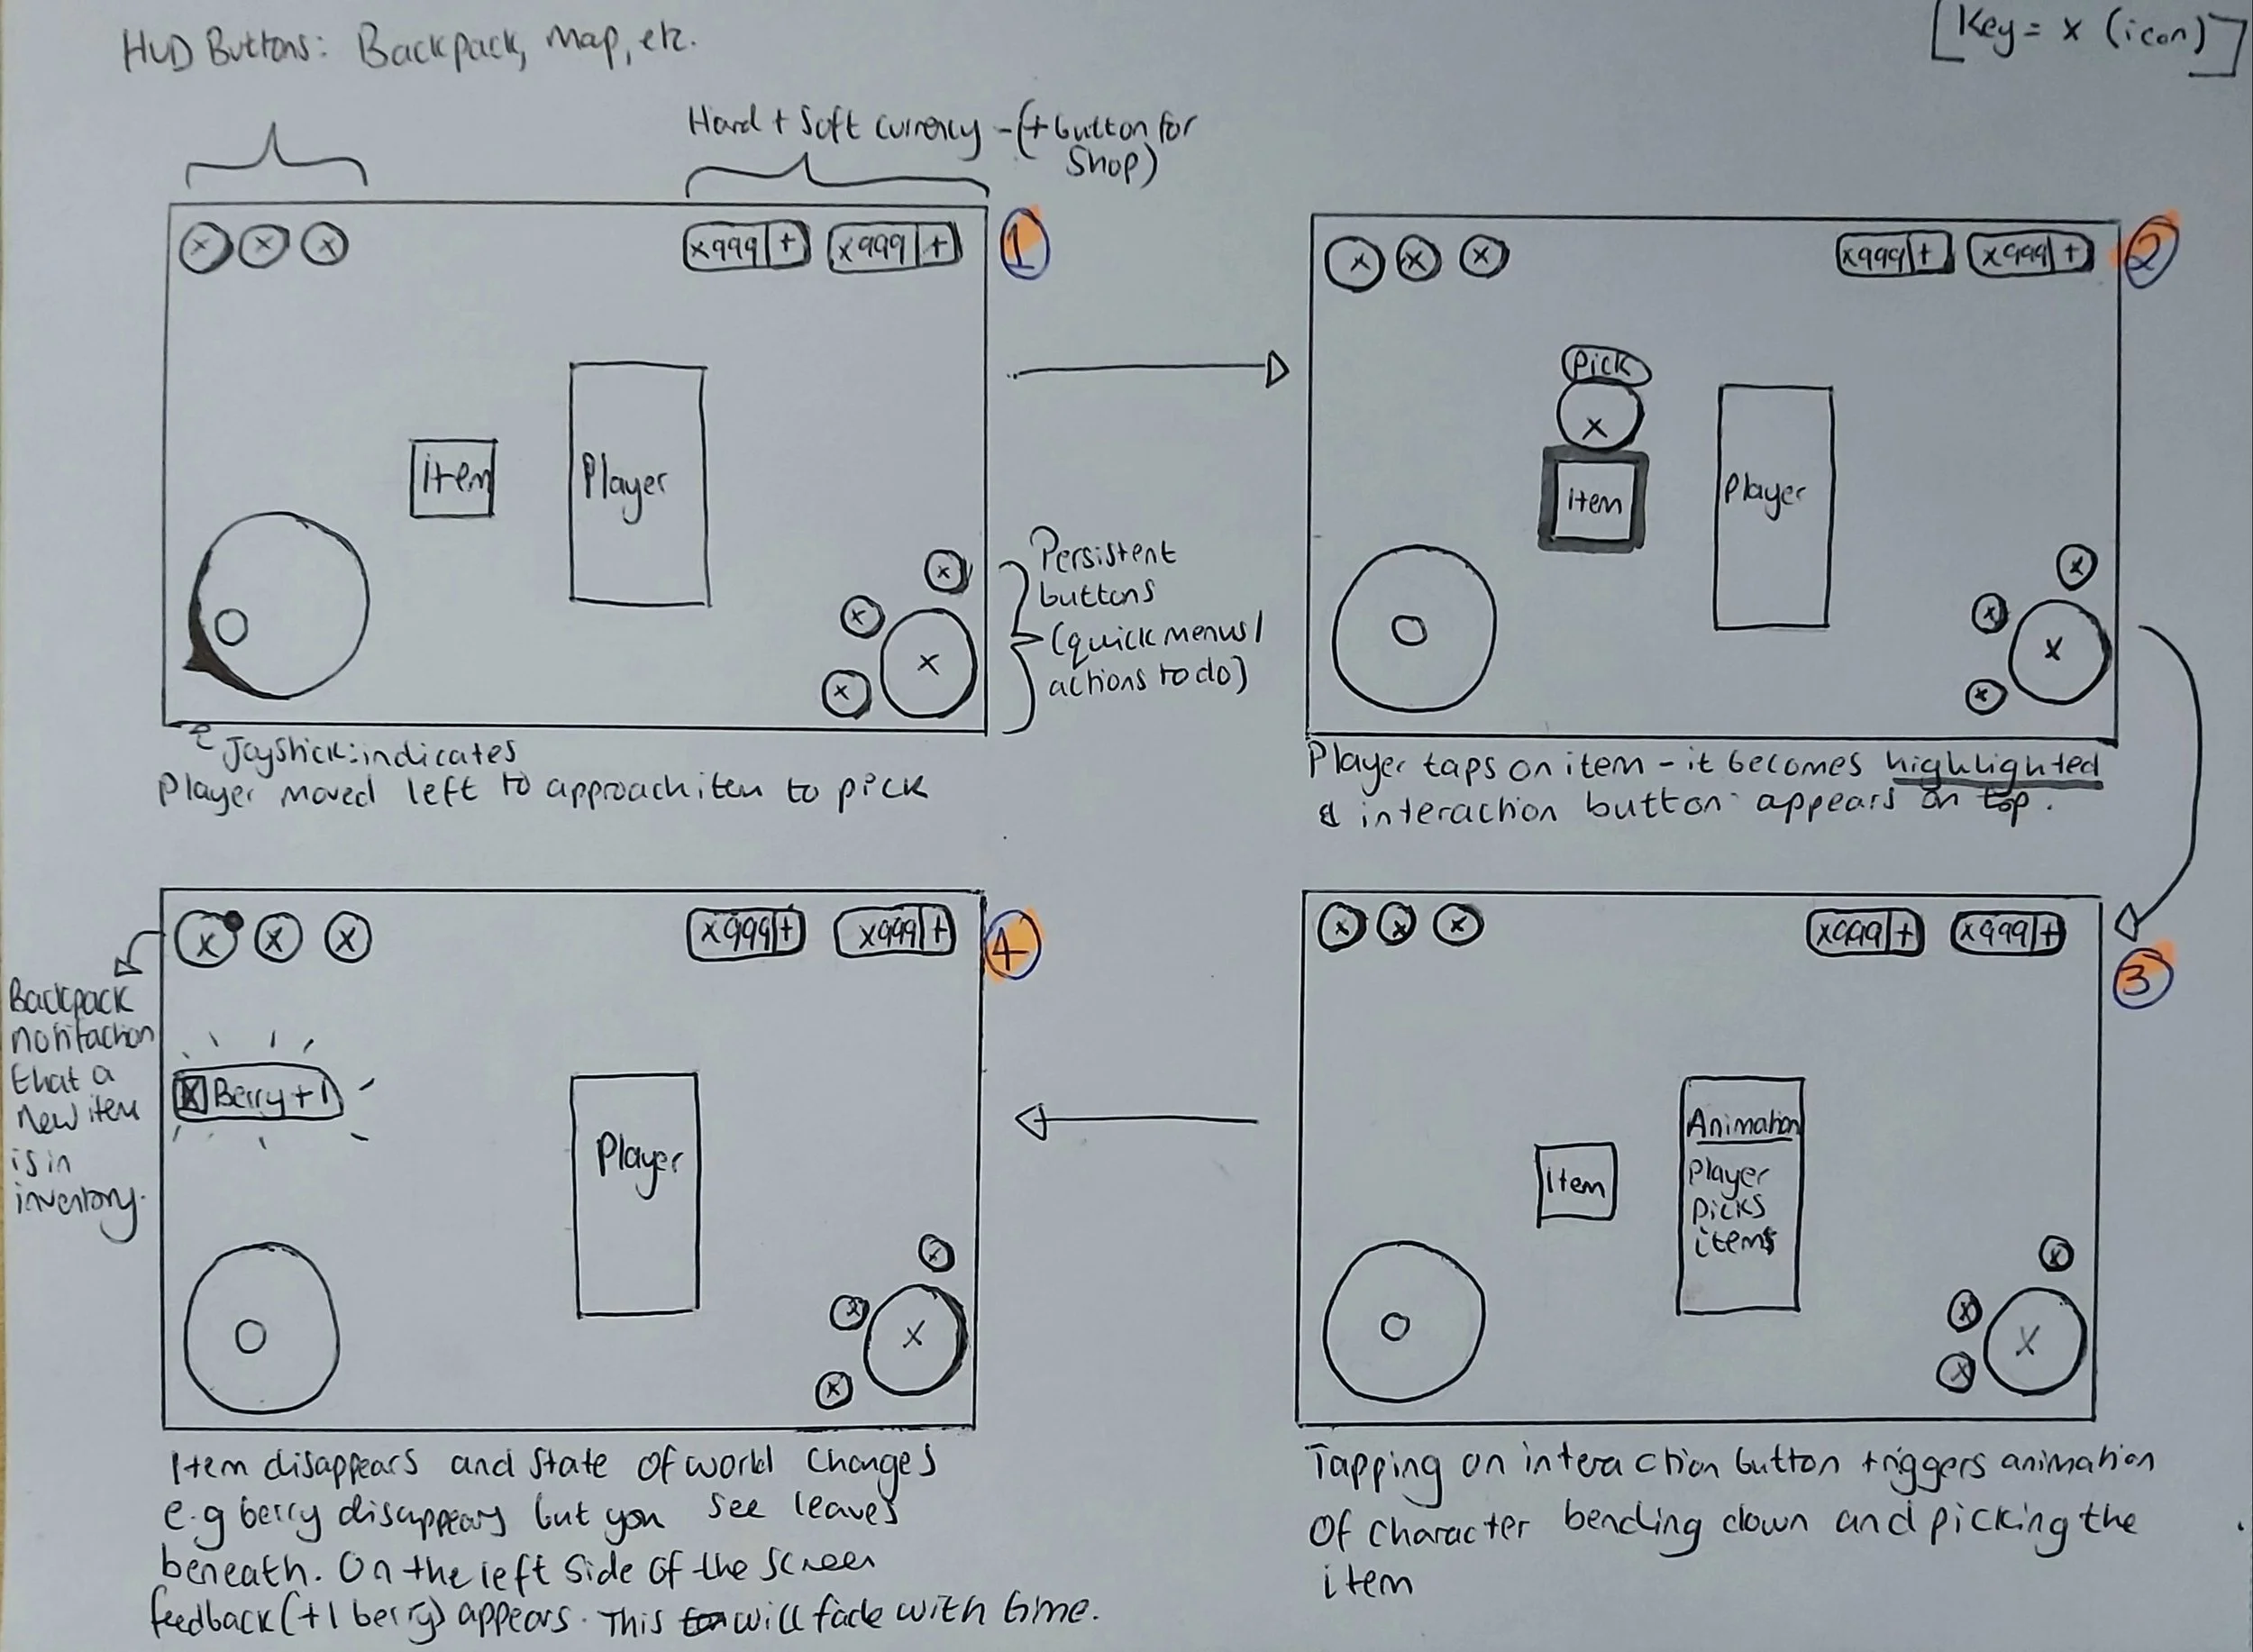 HUD Buttons: Backpack, map, etc.
[Key = x (icon)]
Hard + Soft currency - (+ button for
Shop)
x x x
x999 + x999 +
1
item
Player
x
x
x
x
Persistent
buttons
(quick menus/
actions to do)
Joystick: indicates
Player moved left to approach item to pick
x x x
x999 + x999 +
2
Pick
x
item
Player
x
x
x
x
Player taps on item - it becomes highlighted
& interaction button appears on top.
x x x
x999 + x999 +
3
Item
Animation
Player
picks
items
x
x
x
x
Tapping on interaction button triggers animation
of character bending down and picking the
item
x x x
x999 + x999 +
4
Backpack
notifaction
that a
new item
is in
inventory.
x Berry +1
Player
x
x
x
x
Item disappears and state of world changes
e.g berry disappears but you see leaves
beneath. On the left side of the screen
feedback (+1 berry) appears. This will fade with time.